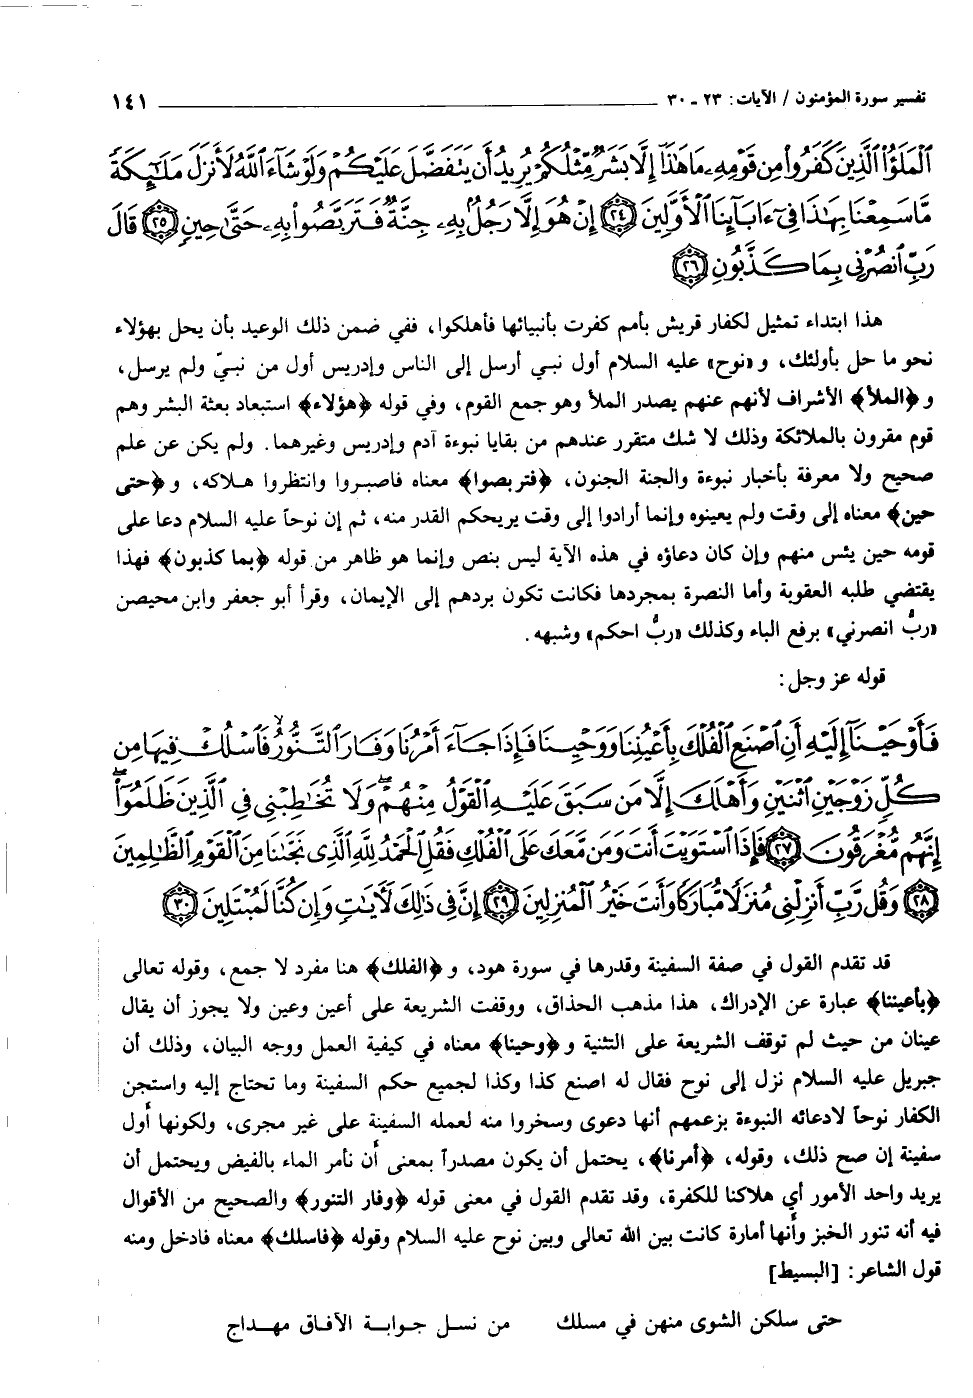 تفسير سورة المؤمنون / الآيات: ٢٣ ـ ٣٠ ١٤١
ٱلْمَلَؤُا۟ ٱلَّذِينَ كَفَرُوا۟ مِن قَوْمِهِۦ مَا هَـٰذَآ إِلَّا بَشَرٌ مِّثْلُكُمْ يُرِيدُ أَن يَتَفَضَّلَ عَلَيْكُمْ وَلَوْ شَآءَ ٱللَّهُ لَأَنزَلَ مَلَـٰٓئِكَةً
مَّا سَمِعْنَا بِهَـٰذَا فِىٓ ءَابَآئِنَا ٱلْأَوَّلِينَ ﴿٢٤﴾ إِنْ هُوَ إِلَّا رَجُلٌۢ بِهِۦ جِنَّةٌ فَتَرَبَّصُوا۟ بِهِۦ حَتَّىٰ حِينٍ ﴿٢٥﴾ قَالَ
رَبِّ ٱنصُرْنِى بِمَا كَذَّبُونِ ﴿٢٦﴾
هذا ابتداء تمثيل لكفار قريش بأمم كفرت بأنبيائها فأهلكوا، ففي ضمن ذلك الوعيد بأن يحل بهؤلاء
نحو ما حل بأولئك، و«نوح» عليه السلام أول نبي أرسل إلى الناس وإدريس أول من نبيّ ولم يرسل،
و﴿الملأ﴾ الأشراف لأنهم عنهم يصدر الملأ وهو جمع القوم، وفي قوله ﴿هؤلاء﴾ استبعاد بعثة البشر وهم
قوم مقرون بالملائكة وذلك لا شك متقرر عندهم من بقايا نبوءة آدم وإدريس وغيرهما. ولم يكن عن علم
صحيح ولا معرفة بأخبار نبوءة والجنة الجنون، ﴿فتربصوا﴾ معناه فاصبروا وانتظروا هلاكه، و﴿حتى
حين﴾ معناه إلى وقت ولم يعينوه وإنما أرادوا إلى وقت يريحكم القدر منه، ثم إن نوحاً عليه السلام دعا على
قومه حين يئس منهم وإن كان دعاؤه في هذه الآية ليس بنص وإنما هو ظاهر من قوله ﴿بما كذبون﴾ فهذا
يقتضي طلبه العقوبة وأما النصرة بمجردها فكانت تكون بردهم إلى الإيمان، وقرأ أبو جعفر وابن محيصن
«ربُّ انصرني» برفع الباء وكذلك «ربُّ احكم» وشبهه.
قوله عز وجل:
فَأَوْحَيْنَآ إِلَيْهِ أَنِ ٱصْنَعِ ٱلْفُلْكَ بِأَعْيُنِنَا وَوَحْيِنَا فَإِذَا جَآءَ أَمْرُنَا وَفَارَ ٱلتَّنُّورُ ۙ فَٱسْلُكْ فِيهَا مِن
كُلٍّ زَوْجَيْنِ ٱثْنَيْنِ وَأَهْلَكَ إِلَّا مَن سَبَقَ عَلَيْهِ ٱلْقَوْلُ مِنْهُمْ ۖ وَلَا تُخَـٰطِبْنِى فِى ٱلَّذِينَ ظَلَمُوٓا۟ ۖ
إِنَّهُم مُّغْرَقُونَ ﴿٢٧﴾ فَإِذَا ٱسْتَوَيْتَ أَنتَ وَمَن مَّعَكَ عَلَى ٱلْفُلْكِ فَقُلِ ٱلْحَمْدُ لِلَّهِ ٱلَّذِى نَجَّىٰنَا مِنَ ٱلْقَوْمِ ٱلظَّـٰلِمِينَ
﴿٢٨﴾ وَقُل رَّبِّ أَنزِلْنِى مُنزَلًا مُّبَارَكًا وَأَنتَ خَيْرُ ٱلْمُنزِلِينَ ﴿٢٩﴾ إِنَّ فِى ذَٰلِكَ لَـَٔايَـٰتٍ وَإِن كُنَّا لَمُبْتَلِينَ ﴿٣٠﴾
قد تقدم القول في صفة السفينة وقدرها في سورة هود، و﴿الفلك﴾ هنا مفرد لا جمع، وقوله تعالى
﴿بأعيننا﴾ عبارة عن الإدراك، هذا مذهب الحذاق، ووقفت الشريعة على أعين وعين ولا يجوز أن يقال
عينان من حيث لم توقف الشريعة على التثنية و﴿وحينا﴾ معناه في كيفية العمل ووجه البيان، وذلك أن
جبريل عليه السلام نزل إلى نوح فقال له اصنع كذا وكذا لجميع حكم السفينة وما تحتاج إليه واستجن
الكفار نوحاً لادعائه النبوءة بزعمهم أنها دعوى وسخروا منه لعمله السفينة على غير مجرى، ولكونها أول
سفينة إن صح ذلك، وقوله، ﴿أمرنا﴾، يحتمل أن يكون مصدراً بمعنى أن نأمر الماء بالفيض ويحتمل أن
يريد واحد الأمور أي هلاكنا للكفرة، وقد تقدم القول في معنى قوله ﴿وفار التنور﴾ والصحيح من الأقوال
فيه أنه تنور الخبز وأنها أمارة كانت بين الله تعالى وبين نوح عليه السلام وقوله ﴿فاسلك﴾ معناه فادخل ومنه
قول الشاعر: [البسيط]
حتى سلكن الشوى منهن في مسلك من نسل جوابة الآفاق مهداج